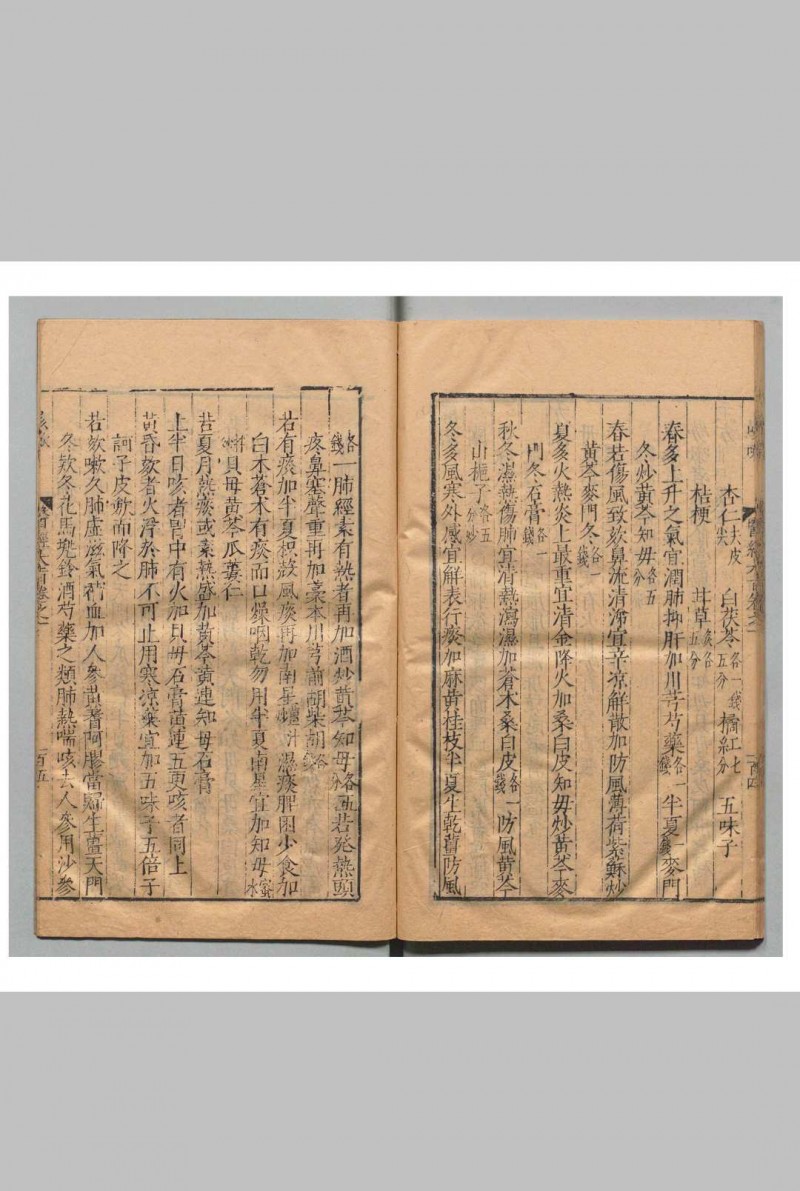 杏仁去皮尖 白茯苓各一錢五分 橘紅七分 五味子
桔梗 甘草炙各五分
春多上升之氣宜潤肺抑肝加川芎芍藥各一錢 半夏一錢麥門
冬炒黃芩知毋各五
春若傷風致欬鼻流清涕宜辛凉解散加防風薄荷紫蘇炒
黃芩麥門冬各一錢
夏多火熱炎上最重宜清金降火加桑白皮知毋炒黃芩麥
門冬石膏各一錢
秋冬濕熱傷肺宜清熱瀉濕加蒼木桑白皮各一錢防風黃芩
山梔子各五分炒
冬多風寒外感宜解表行痰加麻黃桂枝半夏生乾薑防風
各一錢肺經素有熱者再加酒炒黃芩知母各五分若發熱頭
疼鼻塞聲重再加藁本川芎前胡柴胡各一錢
若有痰加半夏枳殼風痰再加南星薑汁炒濕痰脾困少食加
白木蒼木有痰而口燥咽乾勿用半夏南星宜加知母蜜水
拌炒貝母黃芩瓜蔞仁
若夏月熱痰或素熱盛加黃芩黃連知母石膏
上半日咳者胃中有火加貝毋石膏黃連五更咳者同上
黃昏欬者火浮於肺不可止用寒凉藥宜加五味子五倍子
訶子皮歛而降之
若欬嗽久肺虛滋氣補血加人參黃蓍阿膠當歸生薑天門
冬欵冬花馬兠鈴酒芍藥之類肺熱喘咳去人參用沙參
一百五